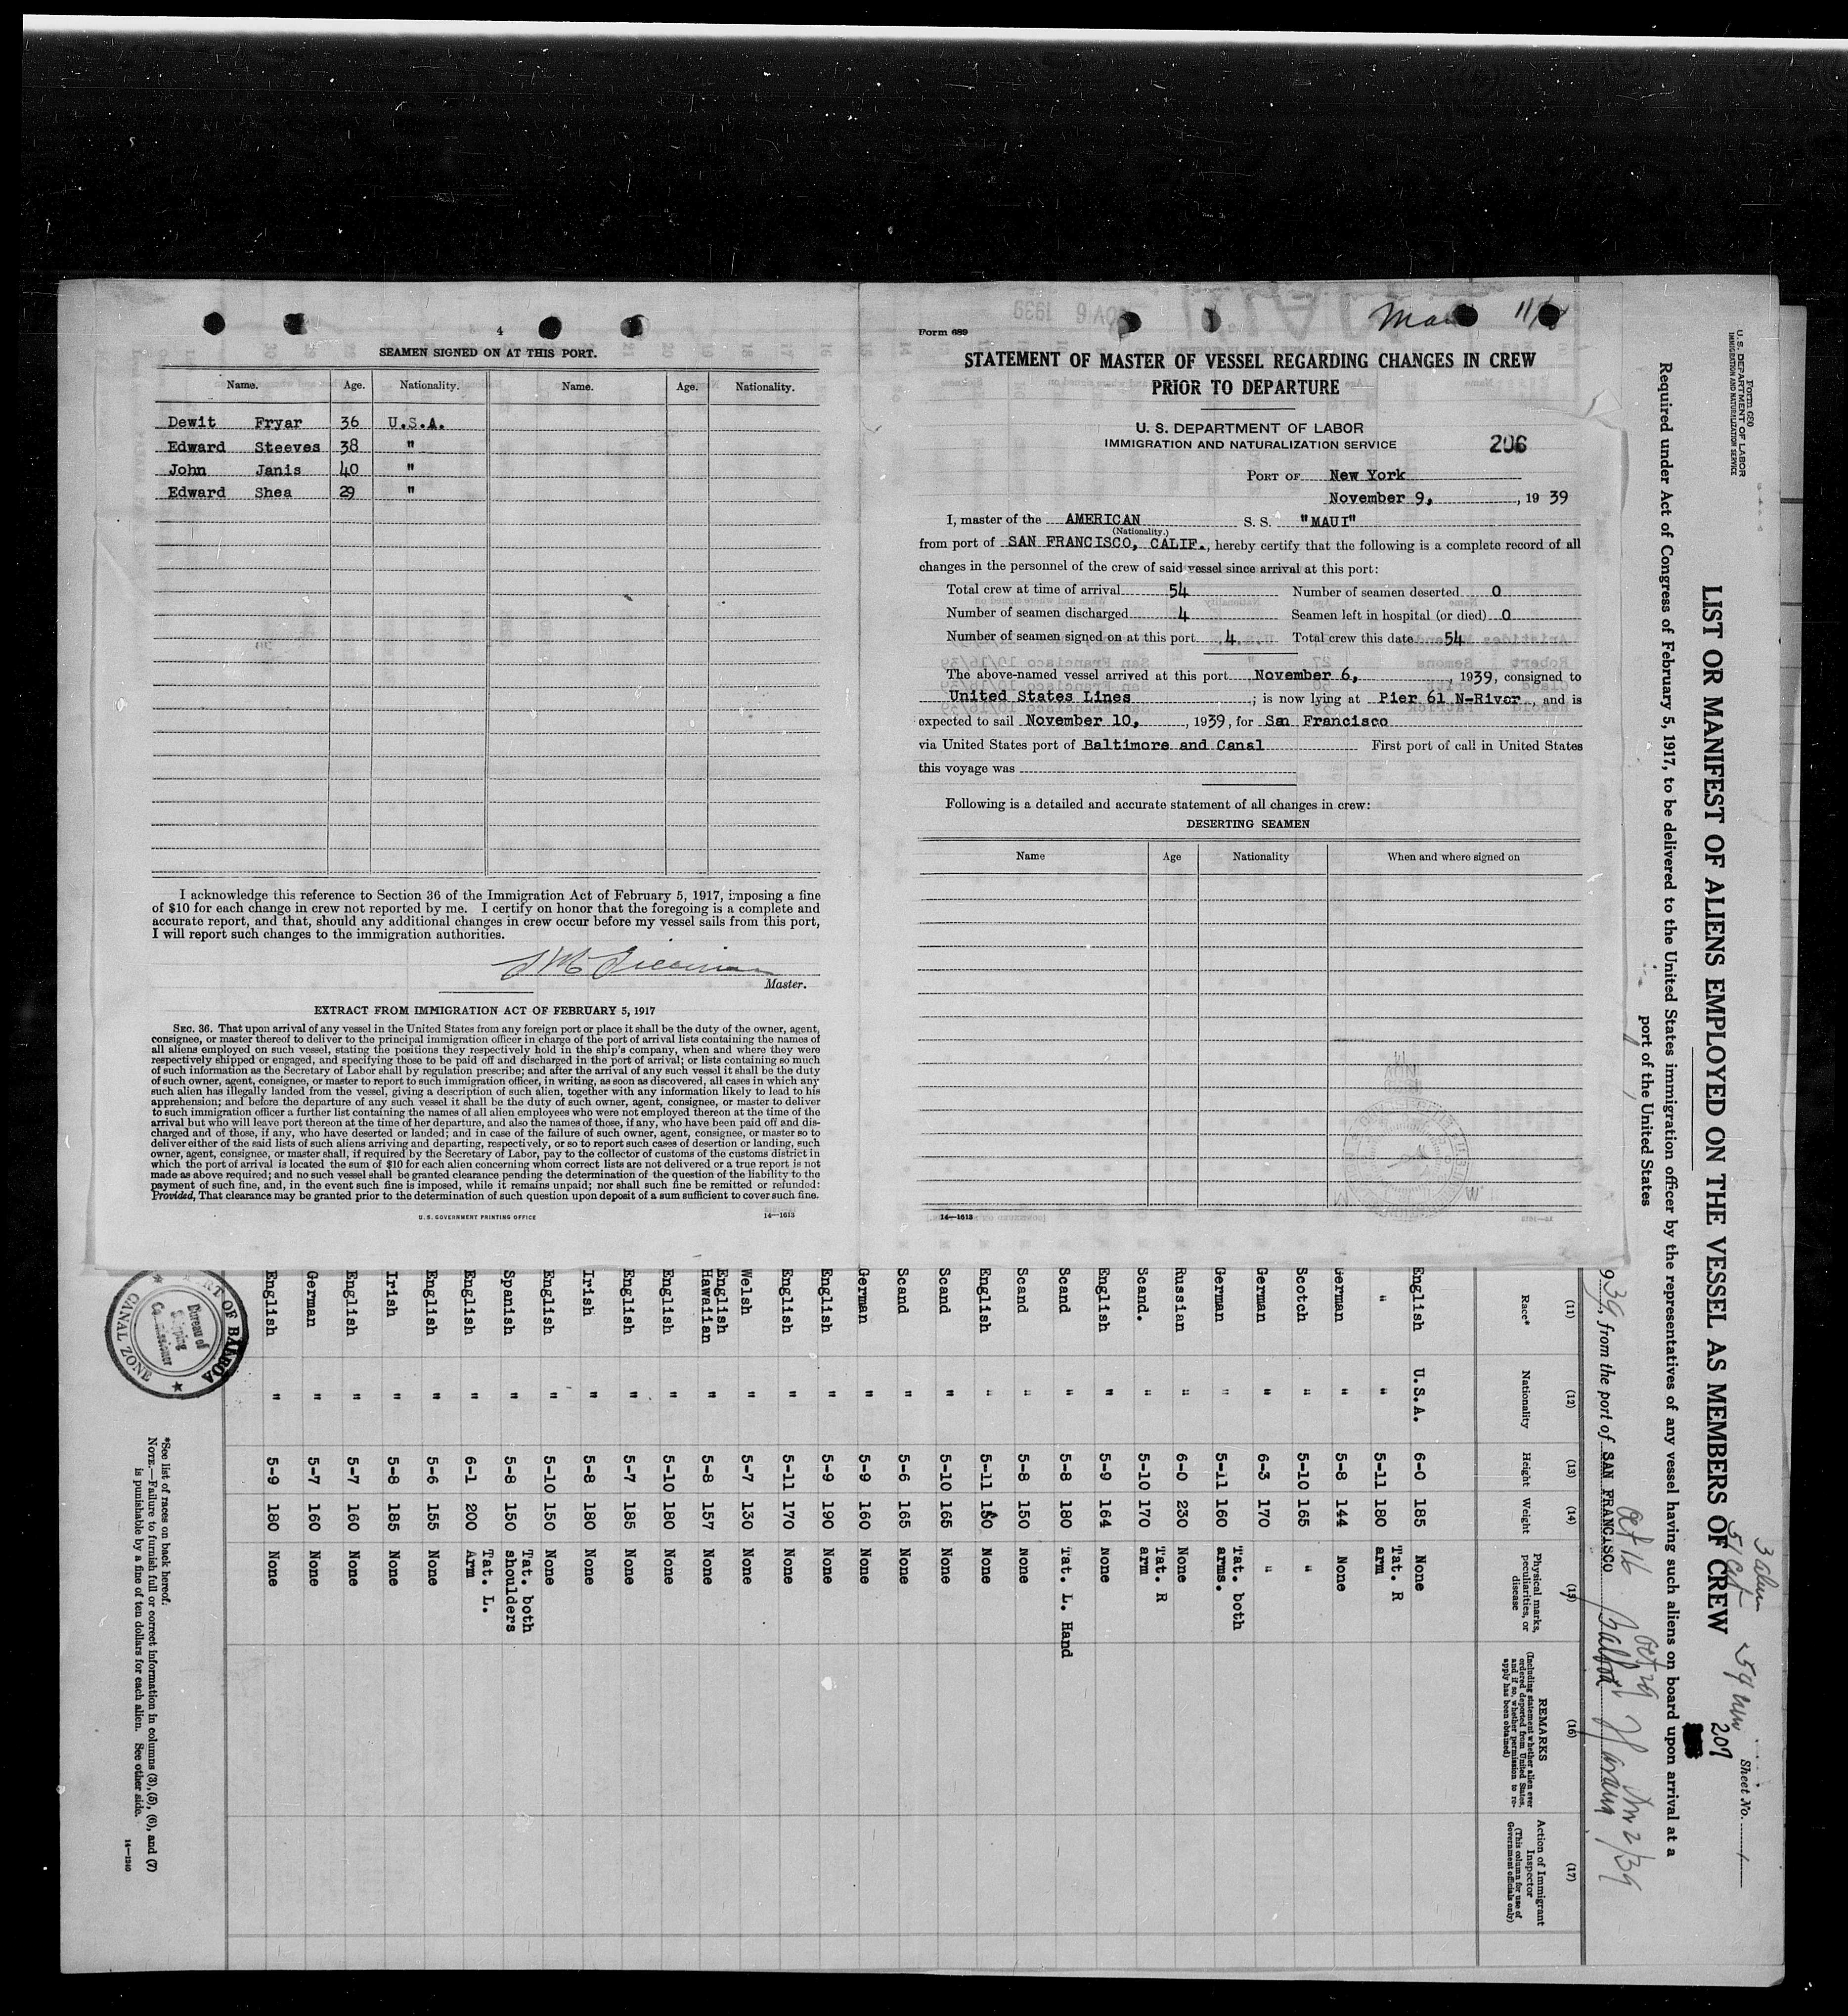 4
SEAMEN SIGNED ON AT THIS PORT.
Name. Age. Nationality. Name. Age. Nationality.
Dewit Fryar 36 U.S.A.
Edward Steeves 38 "
John Janis 40 "
Edward Shea 29 "
I acknowledge this reference to Section 36 of the Immigration Act of February 5, 1917, imposing a fine
of $10 for each change in crew not reported by me. I certify on honor that the foregoing is a complete and
accurate report, and that, should any additional changes in crew occur before my vessel sails from this port,
I will report such changes to the immigration authorities.
Master.
EXTRACT FROM IMMIGRATION ACT OF FEBRUARY 5, 1917
SEC. 36. That upon arrival of any vessel in the United States from any foreign port or place it shall be the duty of the owner, agent,
consignee, or master thereof to deliver to the principal immigration officer in charge of the port of arrival lists containing the names of
all aliens employed on such vessel, stating the positions they respectively hold in the ship's company, when and where they were
respectively shipped or engaged, and specifying those to be paid off and discharged in the port of arrival; or lists containing so much
of such information as the Secretary of Labor shall by regulation prescribe; and after the arrival of any such vessel it shall be the duty
of such owner, agent, consignee, or master to report to such immigration officer, in writing, as soon as discovered, all cases in which any
such alien has illegally landed from the vessel, giving a description of such alien, together with any information likely to lead to his
apprehension; and before the departure of any such vessel it shall be the duty of such owner, agent, consignee, or master to deliver
to such immigration officer a further list containing the names of all alien employees who were not employed thereon at the time of the
arrival but who will leave port thereon at the time of her departure, and also the names of those, if any, who have been paid off and dis-
charged and of those, if any, who have deserted or landed; and in case of the failure of such owner, agent, consignee, or master so to
deliver either of the said lists of such aliens arriving and departing, respectively, or so to report such cases of desertion or landing, such
owner, agent, consignee, or master shall, if required by the Secretary of Labor, pay to the collector of customs of the customs district in
which the port of arrival is located the sum of $10 for each alien concerning whom correct lists are not delivered or a true report is not
made as above required; and no such vessel shall be granted clearance pending the determination of the question of the liability to the
payment of such fine, and, in the event such fine is imposed, while it remains unpaid; nor shall such fine be remitted or refunded:
Provided, That clearance may be granted prior to the determination of such question upon deposit of a sum sufficient to cover such fine.
U. S. GOVERNMENT PRINTING OFFICE 14—1613
Form 689
STATEMENT OF MASTER OF VESSEL REGARDING CHANGES IN CREW
PRIOR TO DEPARTURE
U. S. DEPARTMENT OF LABOR
IMMIGRATION AND NATURALIZATION SERVICE
206
PORT OF New York
November 9, , 19 39
I, master of the AMERICAN S. S. "MAUI"
(Nationality.)
from port of SAN FRANCISCO, CALIF., hereby certify that the following is a complete record of all
changes in the personnel of the crew of said vessel since arrival at this port:
Total crew at time of arrival 54 Number of seamen deserted 0
Number of seamen discharged 4 Seamen left in hospital (or died) 0
Number of seamen signed on at this port 4. Total crew this date 54
The above-named vessel arrived at this port November 6, , 1939, consigned to
United States Lines ; is now lying at Pier 61 N-River , and is
expected to sail November 10, , 1939, for San Francisco
via United States port of Baltimore and Canal First port of call in United States
this voyage was
Following is a detailed and accurate statement of all changes in crew:
DESERTING SEAMEN
Name Age Nationality When and where signed on
14—1613
Form 680
U. S. DEPARTMENT OF LABOR
IMMIGRATION AND NATURALIZATION SERVICE
Sheet No. 1
207
LIST OR MANIFEST OF ALIENS EMPLOYED ON THE VESSEL AS MEMBERS OF CREW
Required under Act of Congress of February 5, 1917, to be delivered to the United States immigration officer by the representatives of any vessel having such aliens on board upon arrival at a
port of the United States
939, from the port of SAN FRANCISCO Oct 16 Balboa Oct 29 Havana Nov 2/39
(11) (12) (13) (14) (15) (16) (17)
Race* Nationality Height Weight Physical marks, peculiarities, or disease
REMARKS
(Including statement whether alien ever ordered deported from United States, and if so, whether permission to reapply has been obtained)
Action of Immigrant Inspector
(This column for use of Government officials only)
English U.S.A. 6-0 185 None
" " 5-11 180 Tat. R arm
German " 5-8 144 None
Scotch " 5-10 165 "
German " 6-3 170 "
German " 5-11 160 Tat. both arms.
Russian " 6-0 230 None
Scand. " 5-10 170 Tat. R arm
English " 5-9 164 None
Scand " 5-8 180 Tat. L. Hand
Scand " 5-8 150 None
English " 5-11 150 None
Scand " 5-10 165 None
Scand " 5-6 165 None
German " 5-9 160 None
English " 5-9 190 None
English " 5-11 170 None
Welsh " 5-7 130 None
English Hawaiian " 5-8 157 None
English " 5-10 180 None
English " 5-7 185 None
Irish " 5-8 180 None
English " 5-10 150 None
Spanish " 5-8 150 Tat. both shoulders
English " 6-1 200 Tat. L. Arm
English " 5-6 155 None
Irish " 5-8 185 None
English " 5-7 160 None
German " 5-7 160 None
English " 5-9 180 None
PORT OF BALBOA
CANAL ZONE
Bureau of
Shipping
Commissioner
*See list of races on back hereof:
NOTE.—Failure to furnish full or correct information in columns (3), (5), (6), and (7)
is punishable by a fine of ten dollars for each alien. See other side.
14—1240